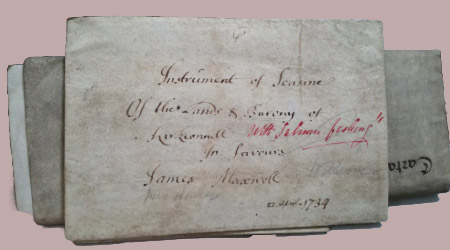 Instrument of Seasine
Of the Lands & Barony of
Kirkconnell With Salmon fishing"
In favours
James Maxwell
22 April 1734
Carta